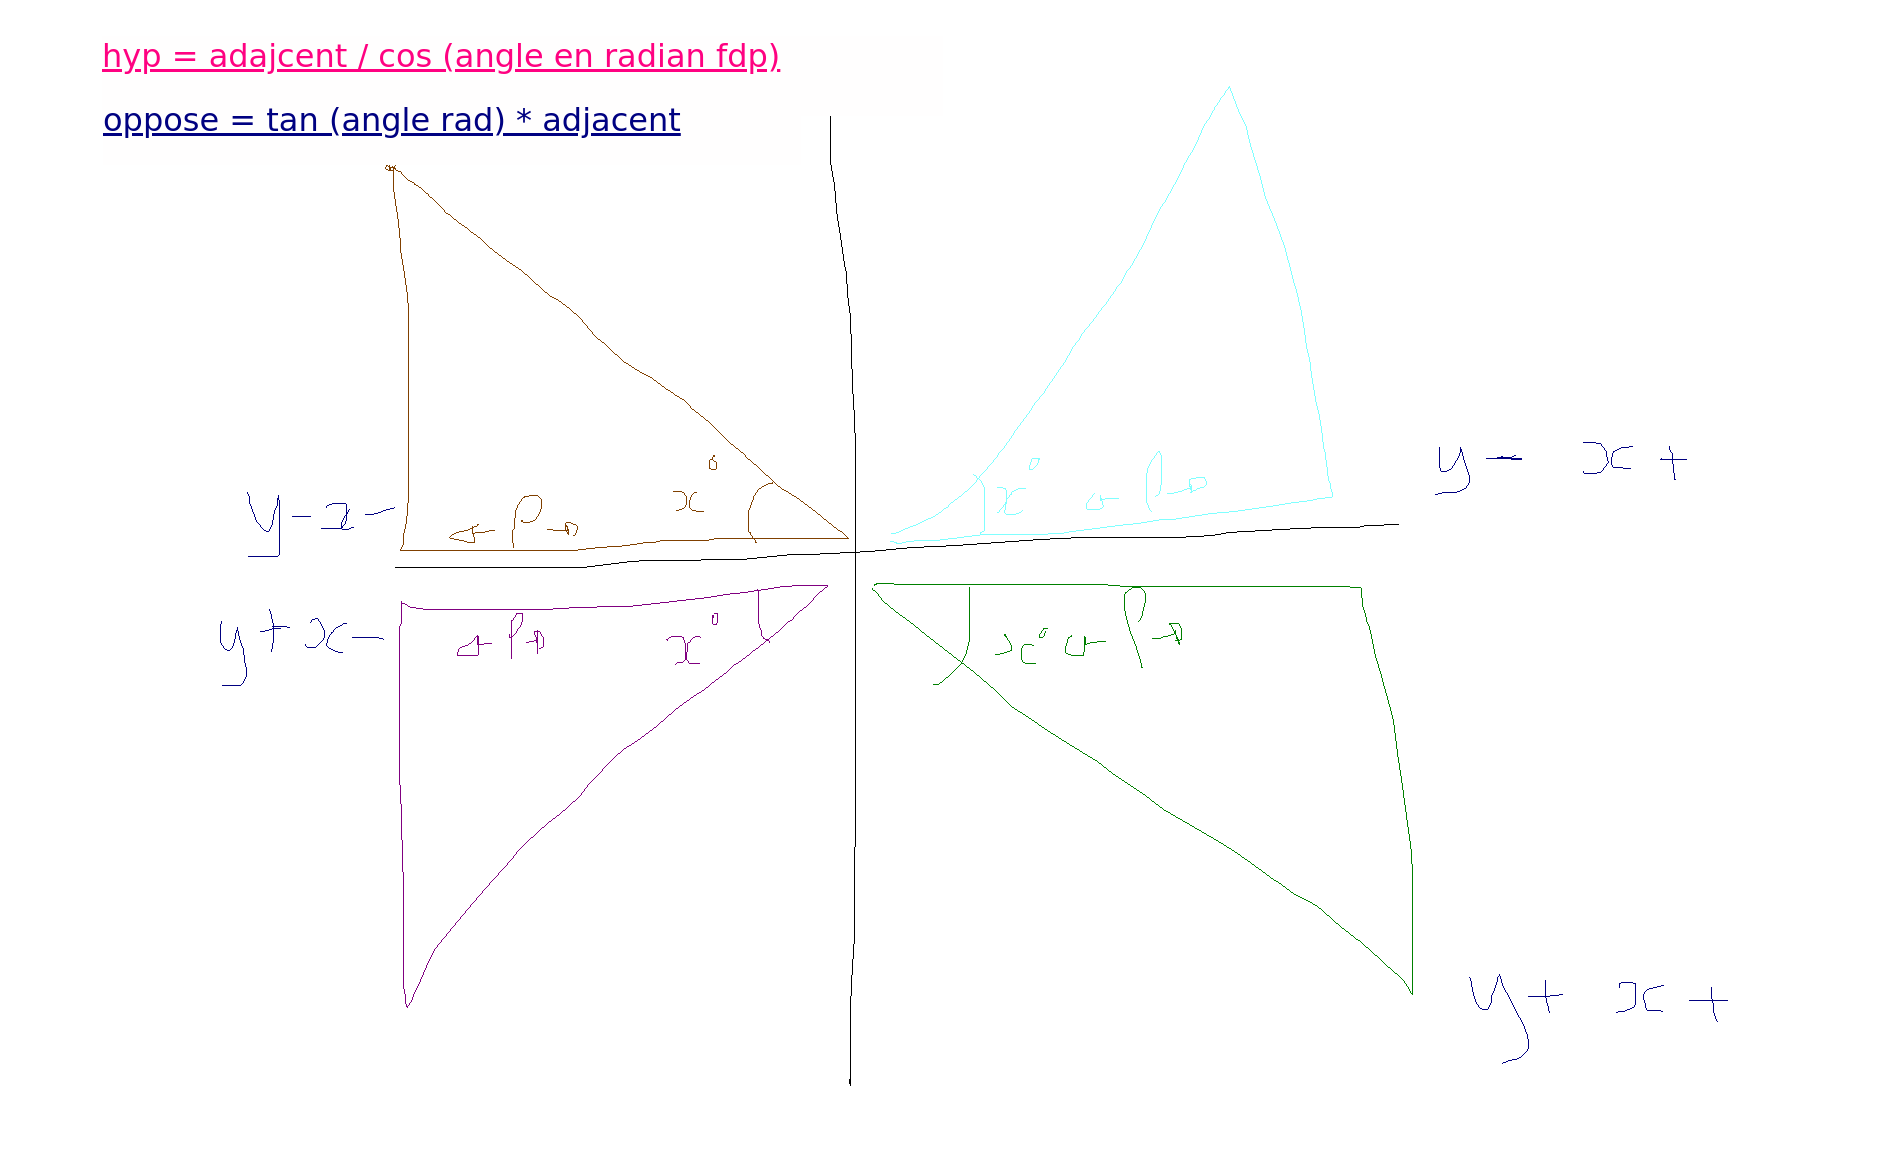 hyp = adajcent / cos (angle en radian fdp)
oppose = tan (angle rad) * adjacent
y - x +
x° ← P →
y - x -
← P → x°
y + x -
← P → x°
x° ← P →
y + x +